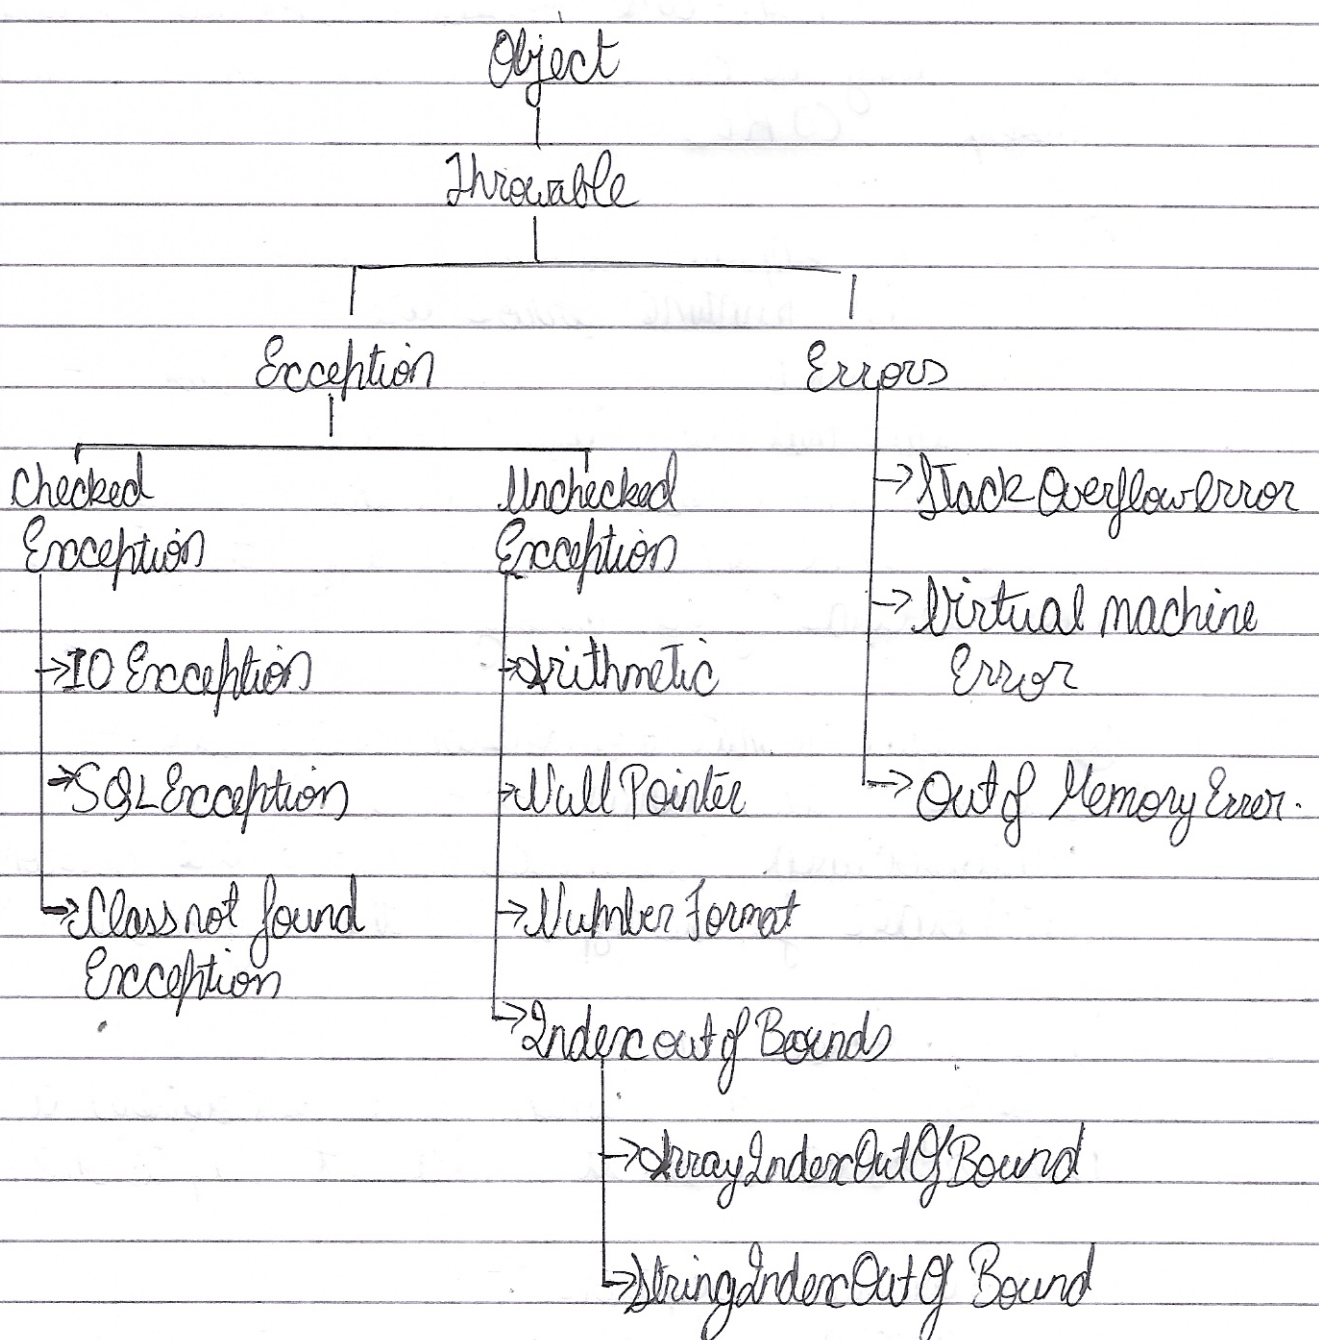 Object
Throwable
Exception
Errors
Checked
Exception
IO Exception
SQL Exception
Class not found
Exception
Unchecked
Exception
Arithmetic
Null Pointer
Number Format
Index out of Bounds
ArrayIndexOutOfBound
StringIndexOutOf Bound
Stack Overflow Error
Virtual Machine
Error
Out of Memory Error.